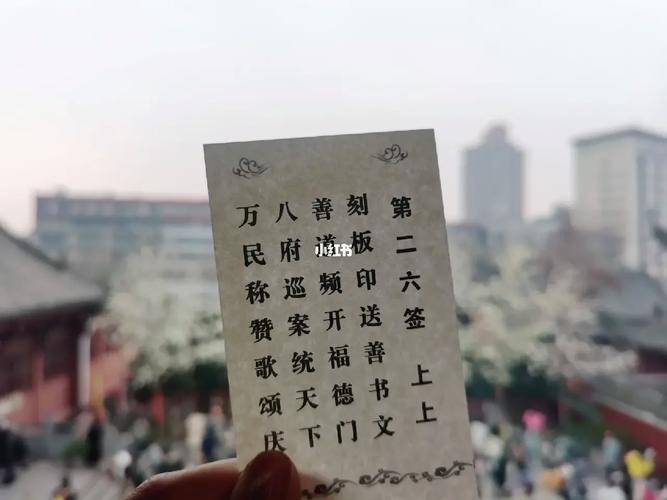 第二六签 上上
刻板印送善书文
善道频开福德门
八府巡案统天下
万民称赞歌颂庆
小红书